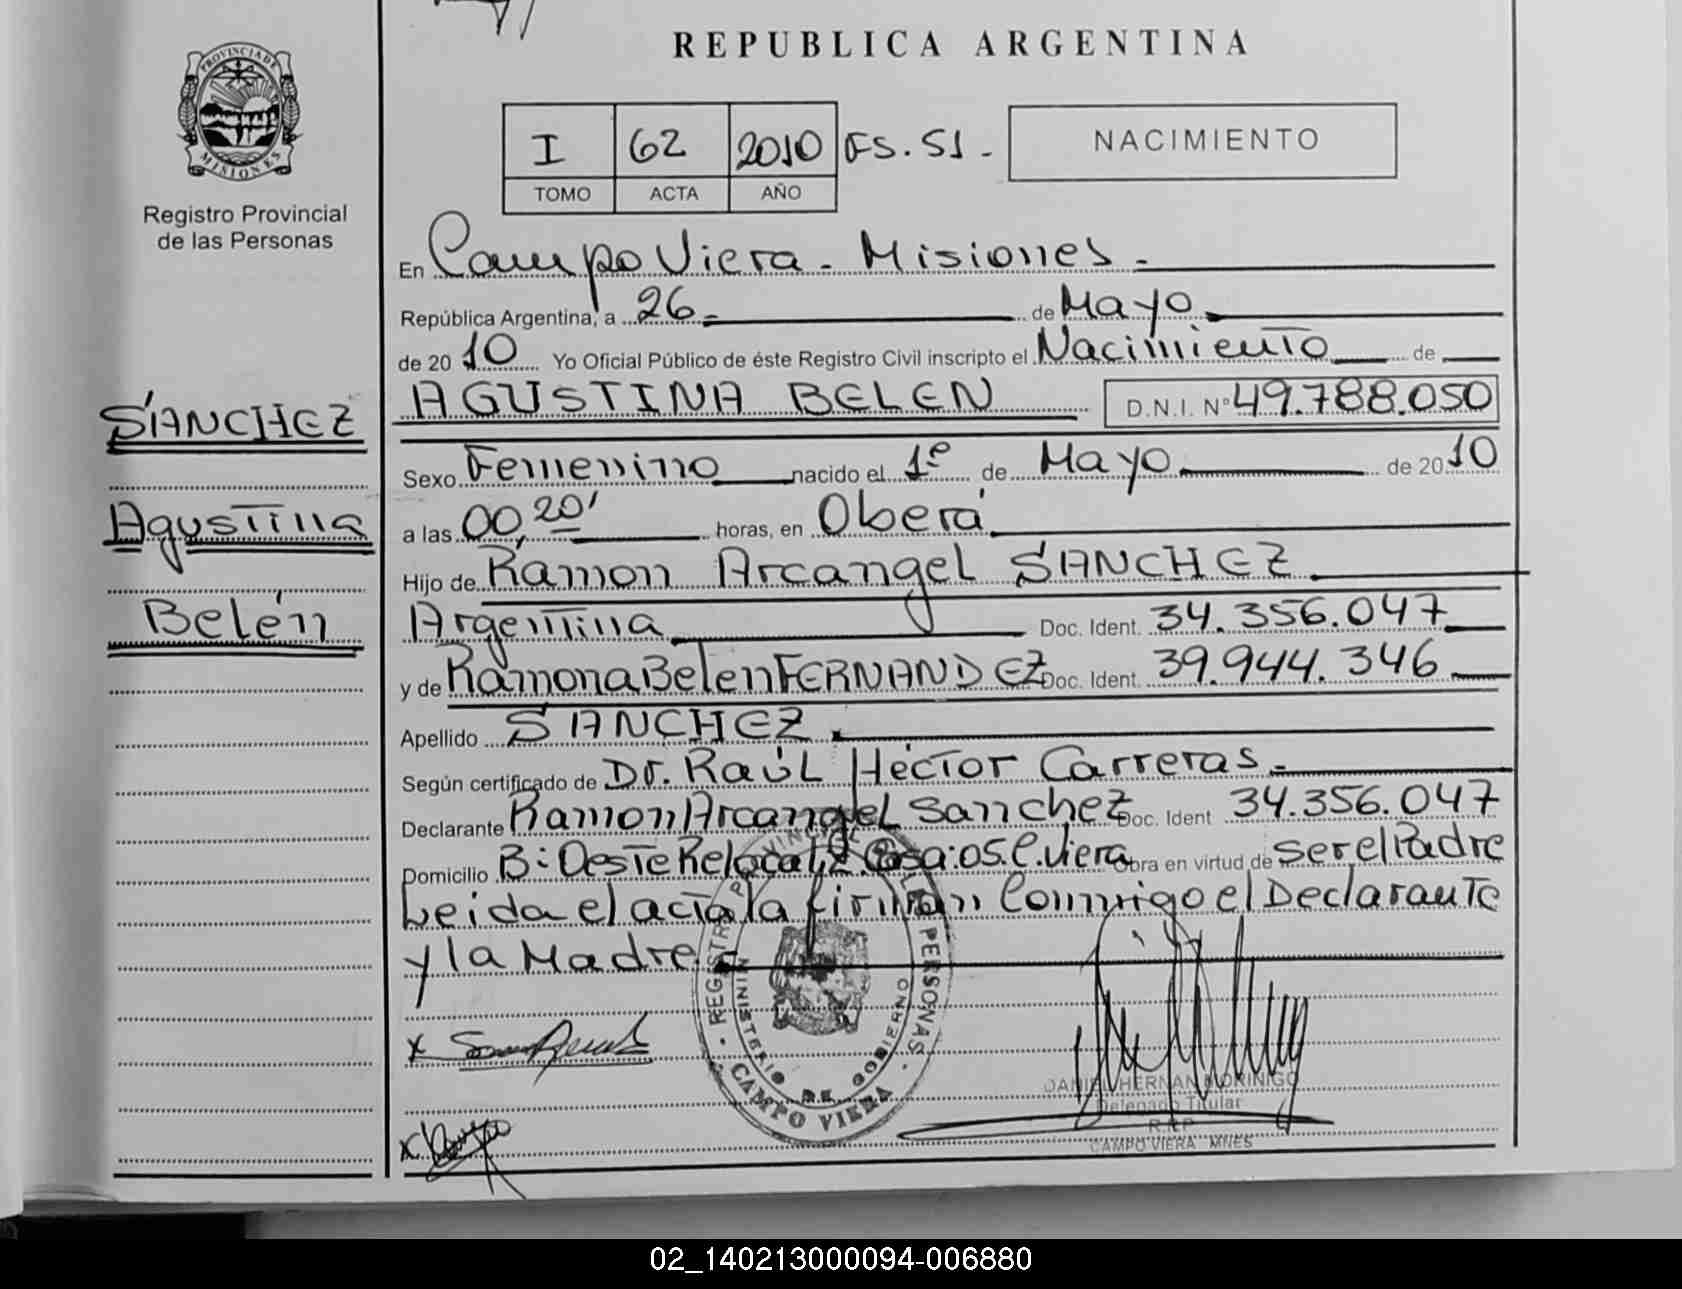 PROVINCIA DE
MISIONES
Registro Provincial
de las Personas
SANCHEZ
Agustina
Belén
REPUBLICA ARGENTINA
I 62 2010 FS. 51.-
TOMO ACTA AÑO
NACIMIENTO
En Campo Viera - Misiones.-
República Argentina, a 26 de Mayo
de 2010 Yo Oficial Público de éste Registro Civil inscripto el Nacimiento de
AGUSTINA BELEN D.N.I. N° 49.788.050
Sexo Femenino nacido el 1º de Mayo de 2010
a las 00,20' horas, en Oberá
Hijo de Ramon Arcangel SANCHEZ
Argentina Doc. Ident. 34.356.047
y de Ramona Belen FERNANDEZ Doc. Ident. 39.944.346
Apellido SANCHEZ
Según certificado de Dr. Raúl Héctor Carreras.
Declarante Ramon Arcangel Sanchez Doc. Ident 34.356.047
Domicilio B: Oeste Relocaliz. Casa: 05. C. Viera Obra en virtud de ser el Padre
Leida el acta la firman Conmigo el Declarante
y la Madre
REGISTRO PROVINCIAL PERSONAS
MINISTERIO DE GOBIERNO
CAMPO VIERA
DANIEL HERNAN MORINIGO
Delegado Titular
R.P.P
CAMPO VIERA MNES
02_140213000094-006880